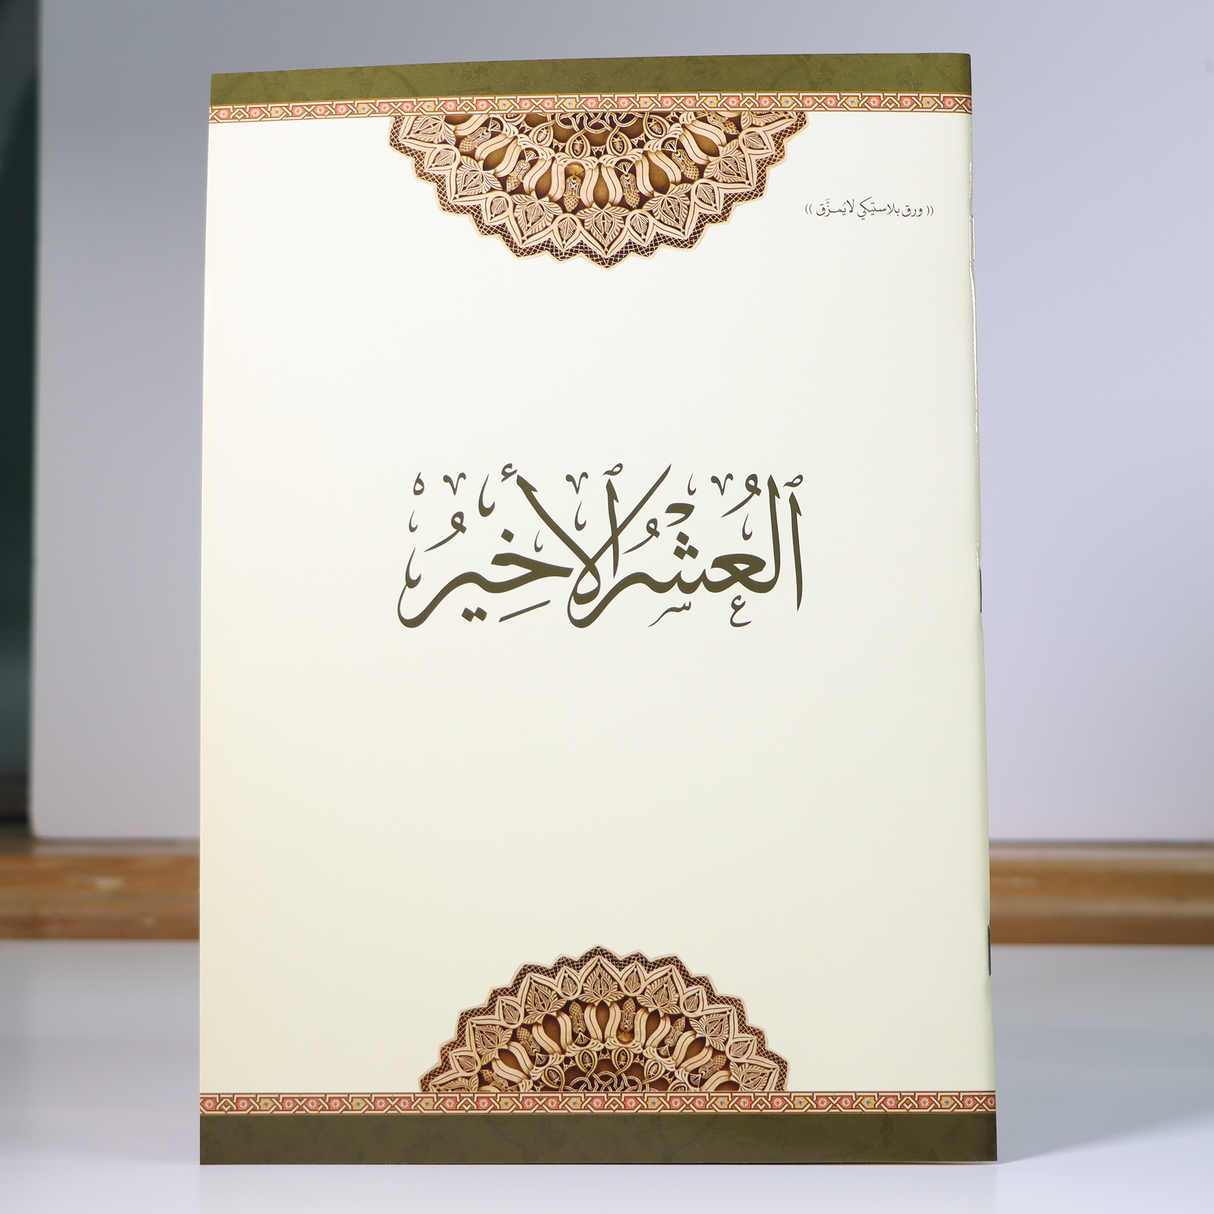 (( ورق بلاستيكي لايُمزَّق ))
ٱلْعُشْرُ ٱلْأَخِيرُ